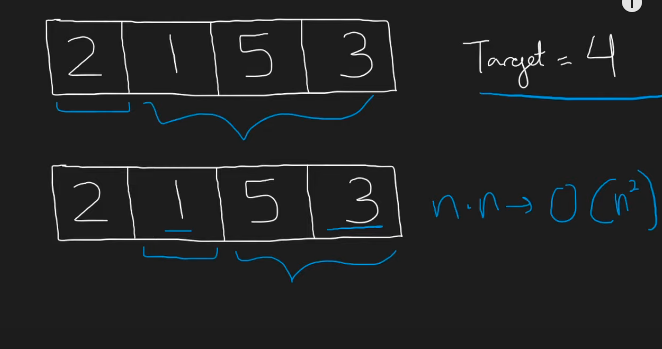 2 1 5 3
Target = 4
2 1 5 3
n·n → O(n²)